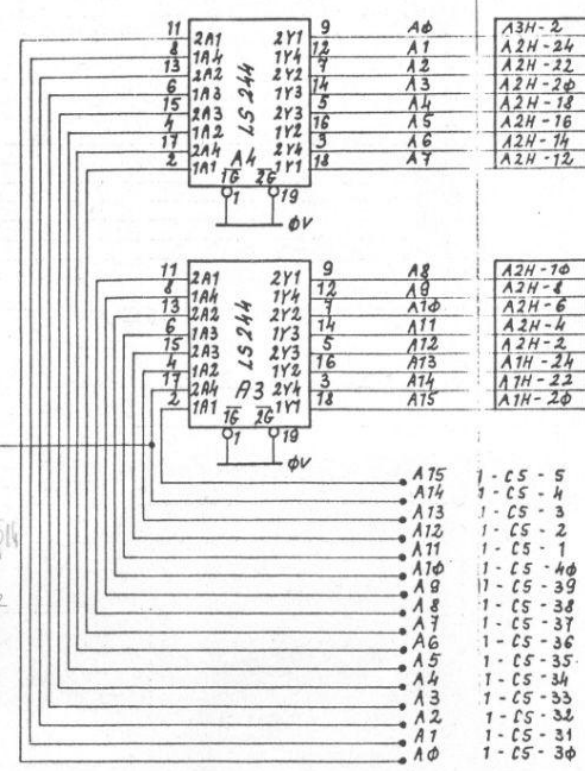 11 2A1 2Y1 9 AΦ A3H-2
8 1A4 1Y4 12 A1 A2H-24
13 2A2 2Y2 7 A2 A2H-22
6 1A3 1Y3 14 A3 A2H-2Φ
15 2A3 2Y3 5 A4 A2H-18
4 1A2 1Y2 16 A5 A2H-16
17 2A4 2Y4 3 A6 A2H-14
2 1A1 1Y1 18 A7 A2H-12
LS244
A4
1G 2G
1 19
ΦV
11 2A1 2Y1 9 A8 A2H-1Φ
8 1A4 1Y4 12 A9 A2H-8
13 2A2 2Y2 7 A1Φ A2H-6
6 1A3 1Y3 14 A11 A2H-4
15 2A3 2Y3 5 A12 A2H-2
4 1A2 1Y2 16 A13 A1H-24
17 2A4 2Y4 3 A14 A1H-22
2 1A1 1Y1 18 A15 A1H-2Φ
LS244
A3
1G 2G
1 19
ΦV
A15 1-C5-5
A14 1-C5-4
A13 1-C5-3
A12 1-C5-2
A11 1-C5-1
A1Φ 1-C5-4Φ
A9 1-C5-39
A8 1-C5-38
A7 1-C5-37
A6 1-C5-36
A5 1-C5-35
A4 1-C5-34
A3 1-C5-33
A2 1-C5-32
A1 1-C5-31
AΦ 1-C5-3Φ